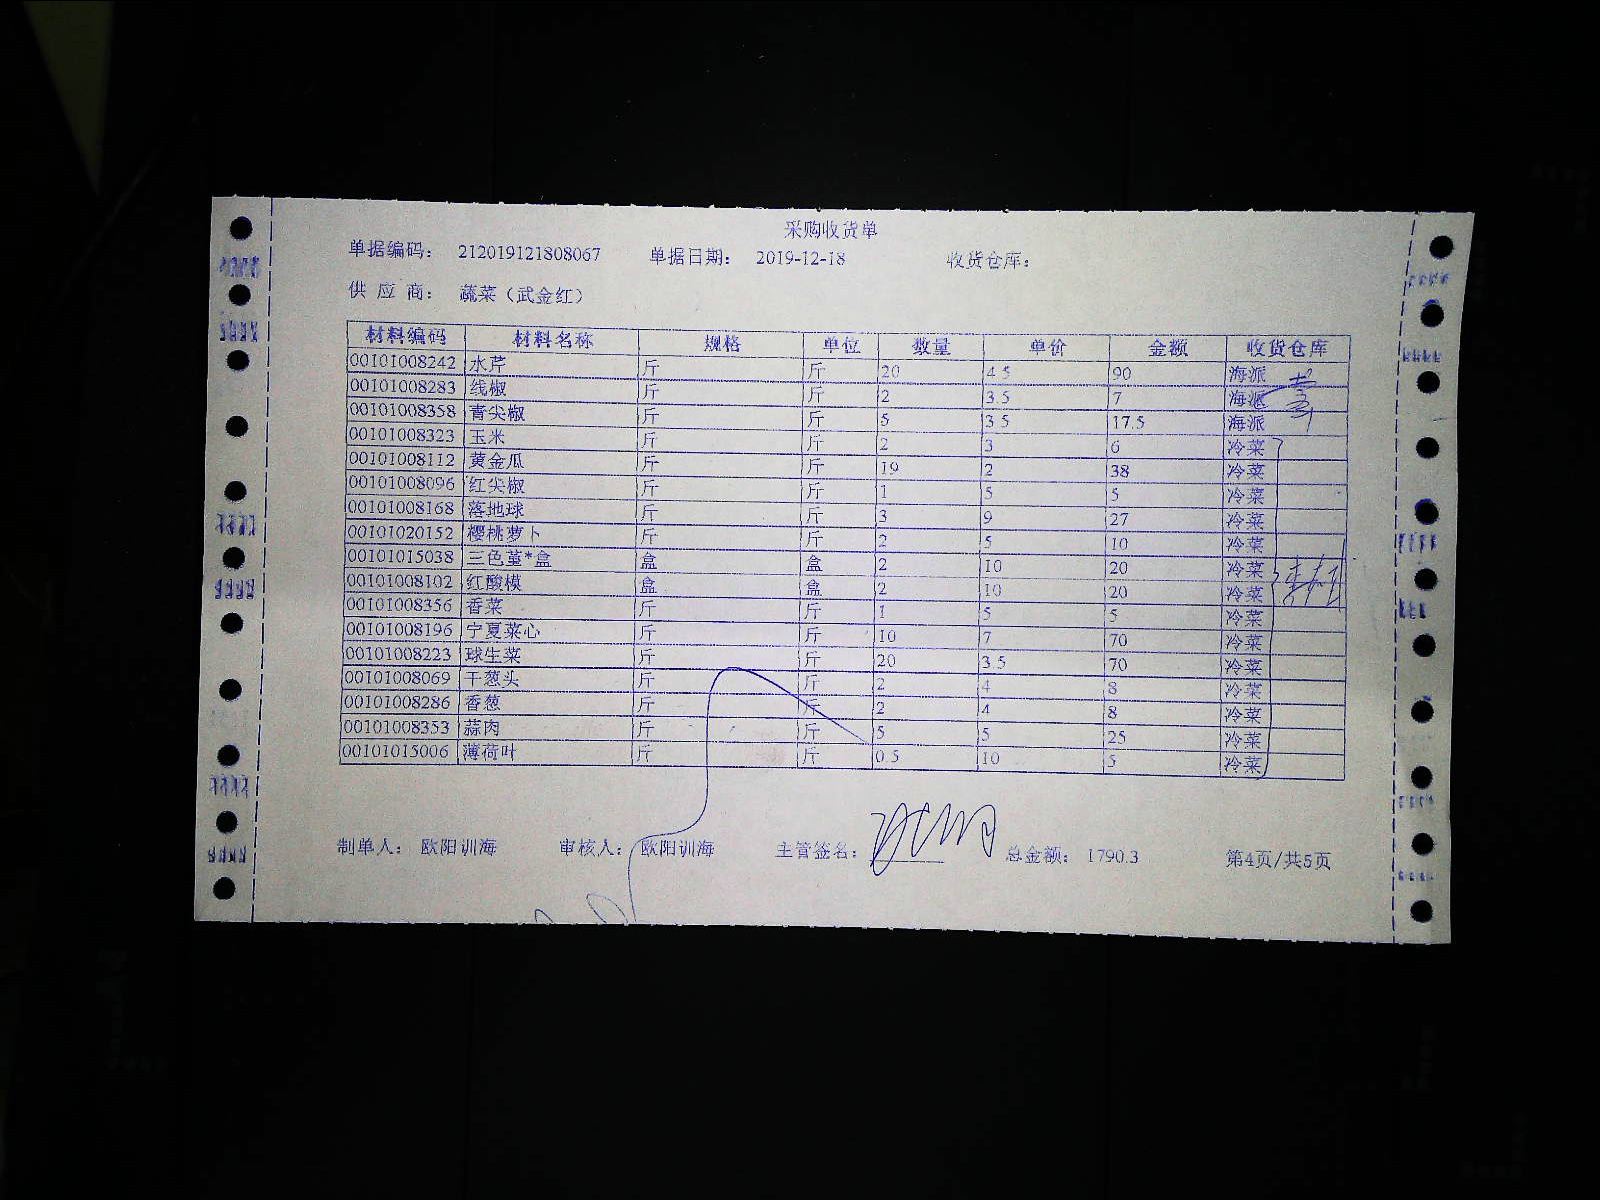 采购收货单
单据编码： 212019121808067 单据日期： 2019-12-18 收货仓库：
供 应 商： 蔬菜（武金红）
材料编码 材料名称 规格 单位 数量 单价 金额 收货仓库
00101008242 水芹 斤 斤 20 4.5 90 海派
00101008283 线椒 斤 斤 2 3.5 7 海派
00101008358 青尖椒 斤 斤 5 3.5 17.5 海派
00101008323 玉米 斤 斤 2 3 6 冷菜
00101008112 黄金瓜 斤 斤 19 2 38 冷菜
00101008096 红尖椒 斤 斤 1 5 5 冷菜
00101008168 落地球 斤 斤 3 9 27 冷菜
00101020152 樱桃萝卜 斤 斤 2 5 10 冷菜
00101015038 三色堇*盒 盒 盒 2 10 20 冷菜
00101008102 红酸模 盒 盒 2 10 20 冷菜
00101008356 香菜 斤 斤 1 5 5 冷菜
00101008196 宁夏菜心 斤 斤 10 7 70 冷菜
00101008223 球生菜 斤 斤 20 3.5 70 冷菜
00101008069 干葱头 斤 斤 2 4 8 冷菜
00101008286 香葱 斤 斤 2 4 8 冷菜
00101008353 蒜肉 斤 斤 5 5 25 冷菜
00101015006 薄荷叶 斤 斤 0.5 10 5 冷菜
制单人： 欧阳训海 审核人： 欧阳训海 主管签名： 总金额： 1790.3 第4页/共5页